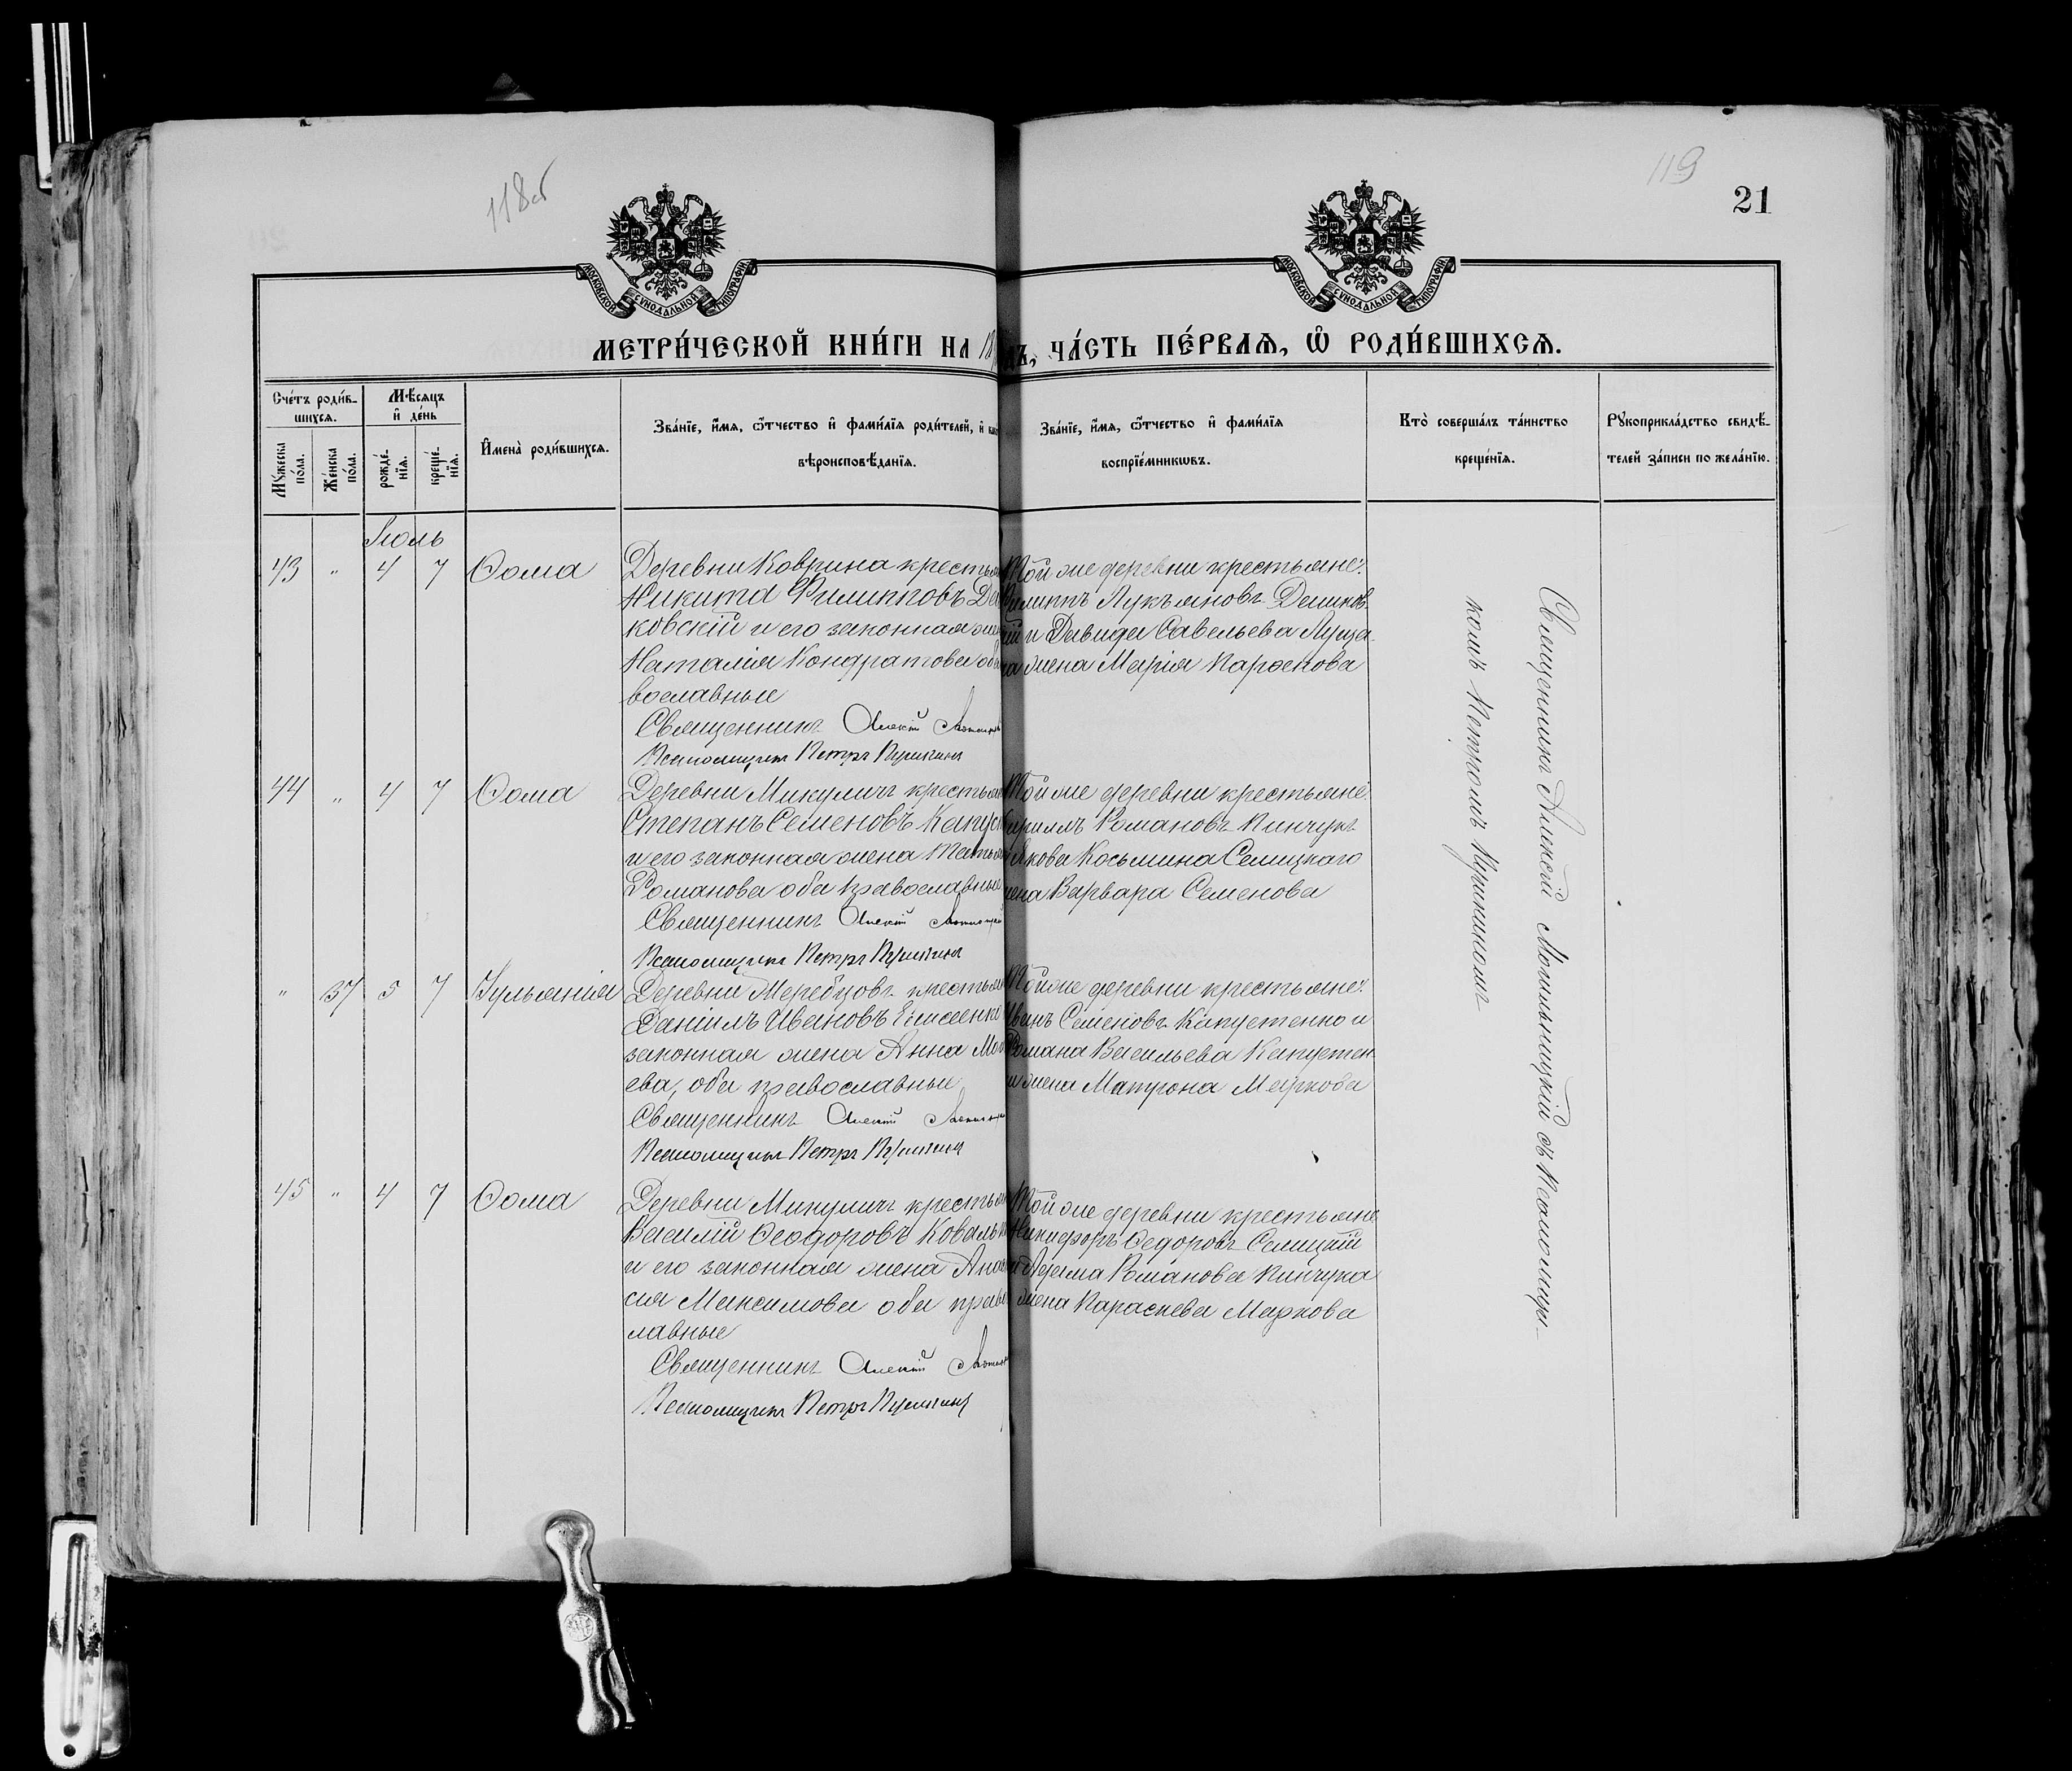 118об
119
21
МОСКОВСКОЙ СѴНОДАЛЬНОЙ ТИПОГРАФІИ
МОСКОВСКОЙ СѴНОДАЛЬНОЙ ТИПОГРАФІИ
МЕТРИ́ЧЕСКОЙ КНИ́ГИ НА 18
ЧА́СТЬ ПЕ́РВАЯ, Ѡ҆ РОДИ́ВШИХСЯ.
Сче́тъ роди́в-
шихся.
Мѣ́сяцъ
и҆ де́нь
Мꙋ́жеска
по́ла.
Же́нска
по́ла.
рожде́-
нїя.
креще́-
нїя.
И҆мена̀ роди́вшихся.
Зва́нїе, и҆́мя, ѻ҆́тчество и҆ фами́лїя роди́телей, и҆
вѣроисповѣ́данїя.
Зва́нїе, и҆́мя, ѻ҆́тчество и҆ фами́лїя
воспрїе́мникѡвъ.
Кто̀ соверша́лъ та́инство
креще́нїя.
Рꙋкоприкла́дство свидѣ́-
телей за́писи по жела́нїю.
Іюль
43 " 4 7 Ѳома
Деревни Коврина крестья
Никита Филипповъ Да
ковскій и его законная же
Наталія Кондратова оба
вославные
Священникъ Алексій
Псаломщикъ Петръ Пушкинъ
Той же деревни крестьяне:
Филиппъ Лукьяновъ Дашков-
ій и Давида Савельева
на жена Марія Парѳенова
44 " 4 7 Ѳома
Деревни Микуличъ крестья
Степанъ Семеновъ Капус
и его законная жена Татья
Романова оба православные
Священникъ Алексій
Псаломщикъ Петръ Пушкинъ
Той же деревни крестьяне:
Кириллъ Романовъ Пинчукъ
Якова Косьмина Селицкаго
жена Варвара Семенова
" 37 5 7 Іульянія
Деревни Жеребцовъ крестья
Даніилъ Ивановъ
законная жена Анна
ева, оба православные
Священникъ Алексій
Псаломщикъ Петръ Пушкинъ
Той же деревни крестьяне:
Иванъ Семеновъ Капустенко и
Романа Васильева Капустен-
жена Матрона Маркова
45 " 4 7 Ѳома
Деревни Микуличъ крестья
Василій Ѳеодоровъ Коваль
и его законная жена Анас
сія Максимова оба право
лавные
Священникъ Алексій
Псаломщикъ Петръ Пушкинъ
Той же деревни крестьяне
Никифоръ Ѳедоровъ Селицкій
и Адама Романова Пинчука
жена Параскева Маркова
Священникъ Алексій Могильницкій съ Псаломщи-
комъ Петромъ Пушкиномъ